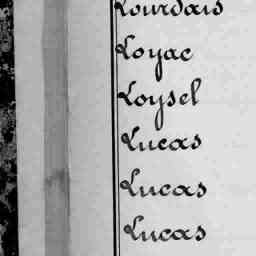 Lourdais
Loyac
Loysel
Lucas
Lucas
Lucas